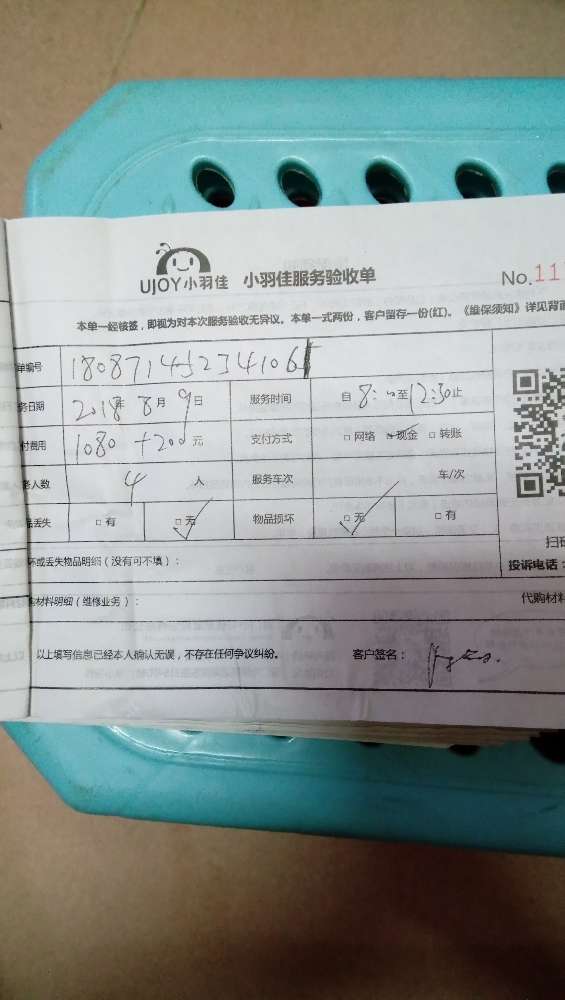 UJOY小羽佳 小羽佳服务验收单
No.11
本单一经核签，即视为对本次服务验收无异议。本单一式两份，客户留存一份(红)。《维保须知》详见背面
单编号 18087145234106
务日期 2018年8月9日 服务时间 自8:00至12:30止
付费用 1080+200元 支付方式 □网络 □现金 □转账
务人数 4人 服务车次 车/次
品丢失 □有 □无 物品损坏 □无 □有
坏或丢失物品明细（没有可不填）： 投诉电话：
材料明细（维修业务）： 代购材料
以上填写信息已经本人确认无误，不存在任何争议纠纷。 客户签名：